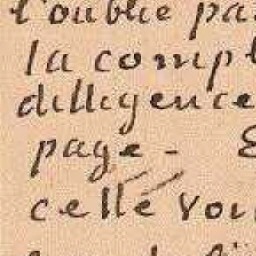 l'oublie pa
la compl
dilligence
page - E
cette vou